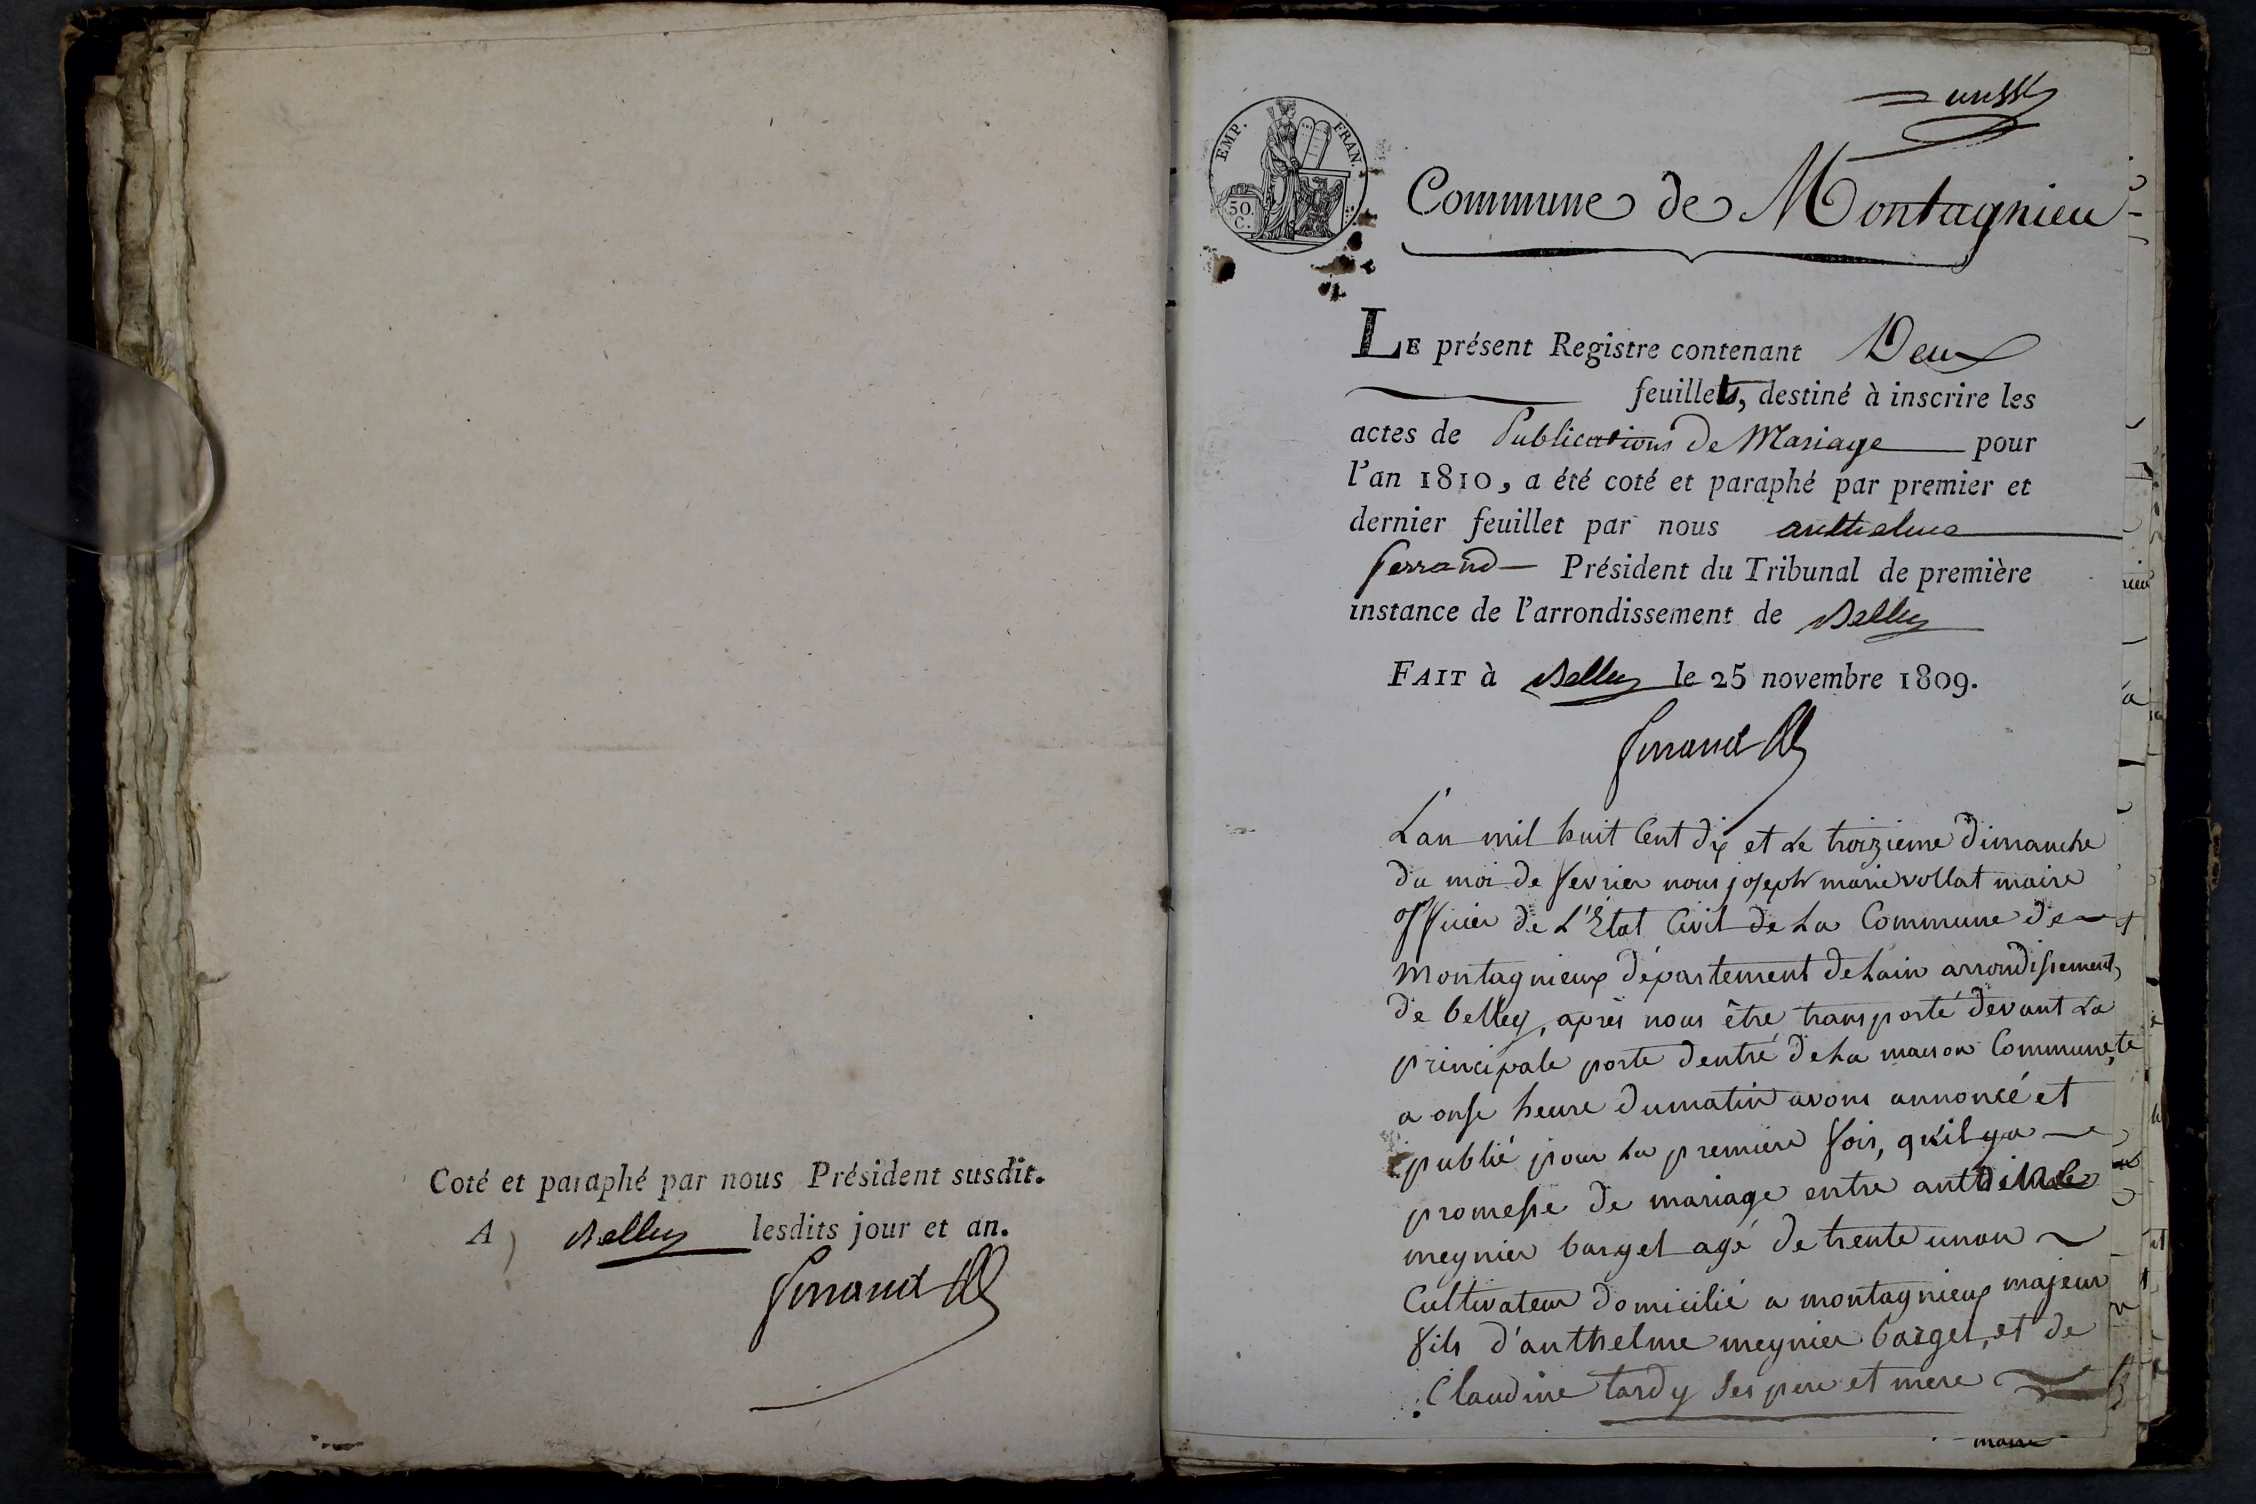 Coté et paraphé par nous Président susdit.
A Belley lesdits jour et an.
Ferrand
EMP. FRAN.
50.
C.
Commune de Montagnieu
LE présent Registre contenant Deux
feuillets, destiné à inscrire les
actes de Publications de Mariage pour
l'an 1810, a été coté et paraphé par premier et
dernier feuillet par nous anthelme
ferrand Président du Tribunal de première
instance de l'arrondissement de Belley
FAIT à Belley le 25 novembre 1809.
Ferrand
L'an mil huit Cent dix et le troizieme dimanche
du moi de fevrier nous joseph marie vollat maire
officier de L'Etat Civil de la Commune de
Montagnieux département de lain arrondissement
de belley, après nous être transporté devant la
principale porte dentré de la maison Commune,
a onse heure du matin avons annoncé et
publié pour la premiere fois, qu'il y a
promesse de mariage entre anthelme
meynier barget agé de trente un an
Cultivateur domicilié a montagnieux majeur
fils d'anthelme meynier barget, et de
Claudine tardy ses pere et mere